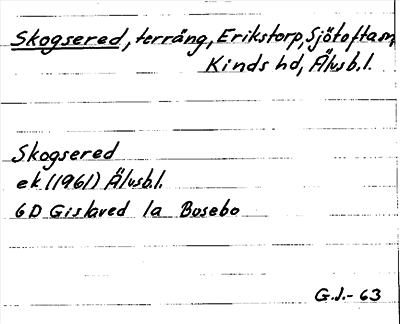 Skogsered, terräng, Erikstorp, Sjötofta sn,
Kinds hd, Älvsb. l.
Skogsered
ek. (1961) Älvsb. l.
6D Gislaved 1a Bosebo
G.J.-63